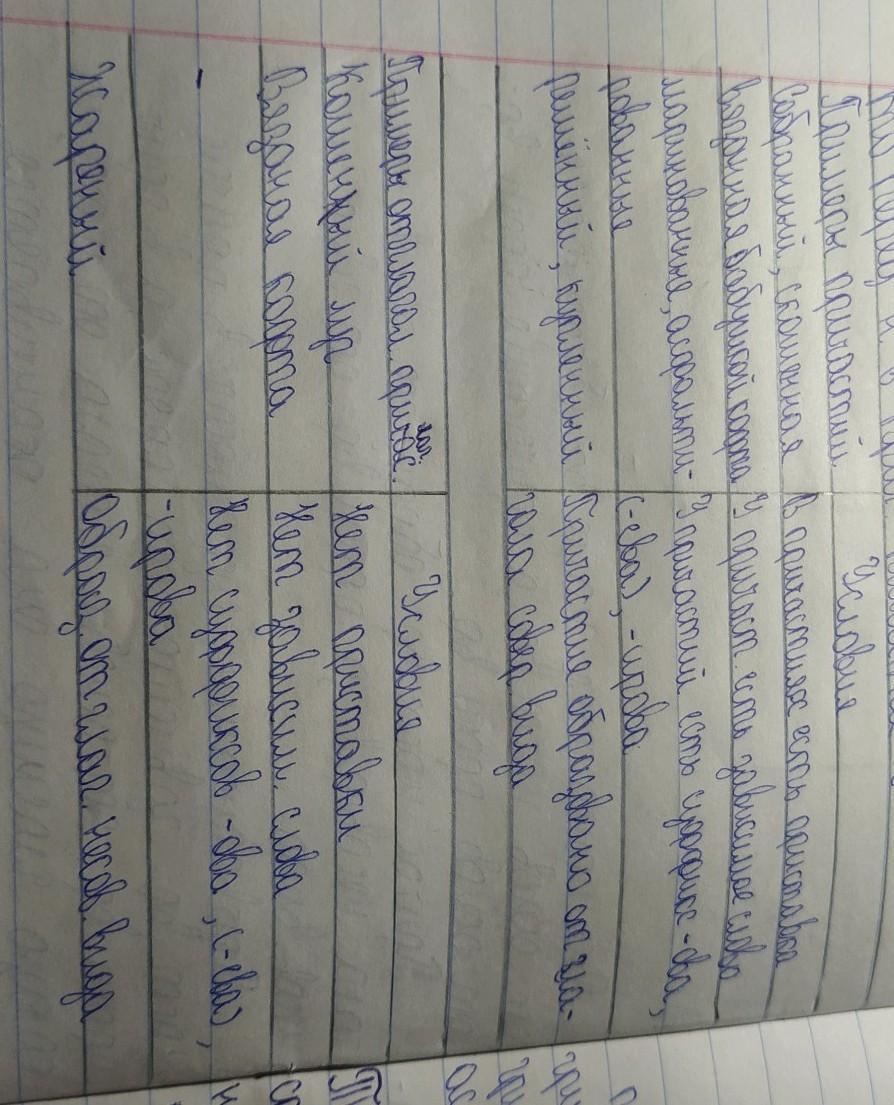 Примеры причастий
Условия
Собранный, скошенная
В причастиях есть приставка
везанная бабушкой кофта
У причаст. есть зависимое слово
маринованные, асфальти-
рованные
У причастий есть суффикс -ова,
(-ева), -ирова.
решённый, купленный
Причастие образовано от гла-
гола сов. вида
Примеры отглагол. прилаг.
Условия
Кошенный луг
Нет приставки
Везаная кофта
Нет зависим. слова
-
Нет суффиксов -ова, (-ева),
-ирова
Жареный
Образ. от глаг. несов. вида